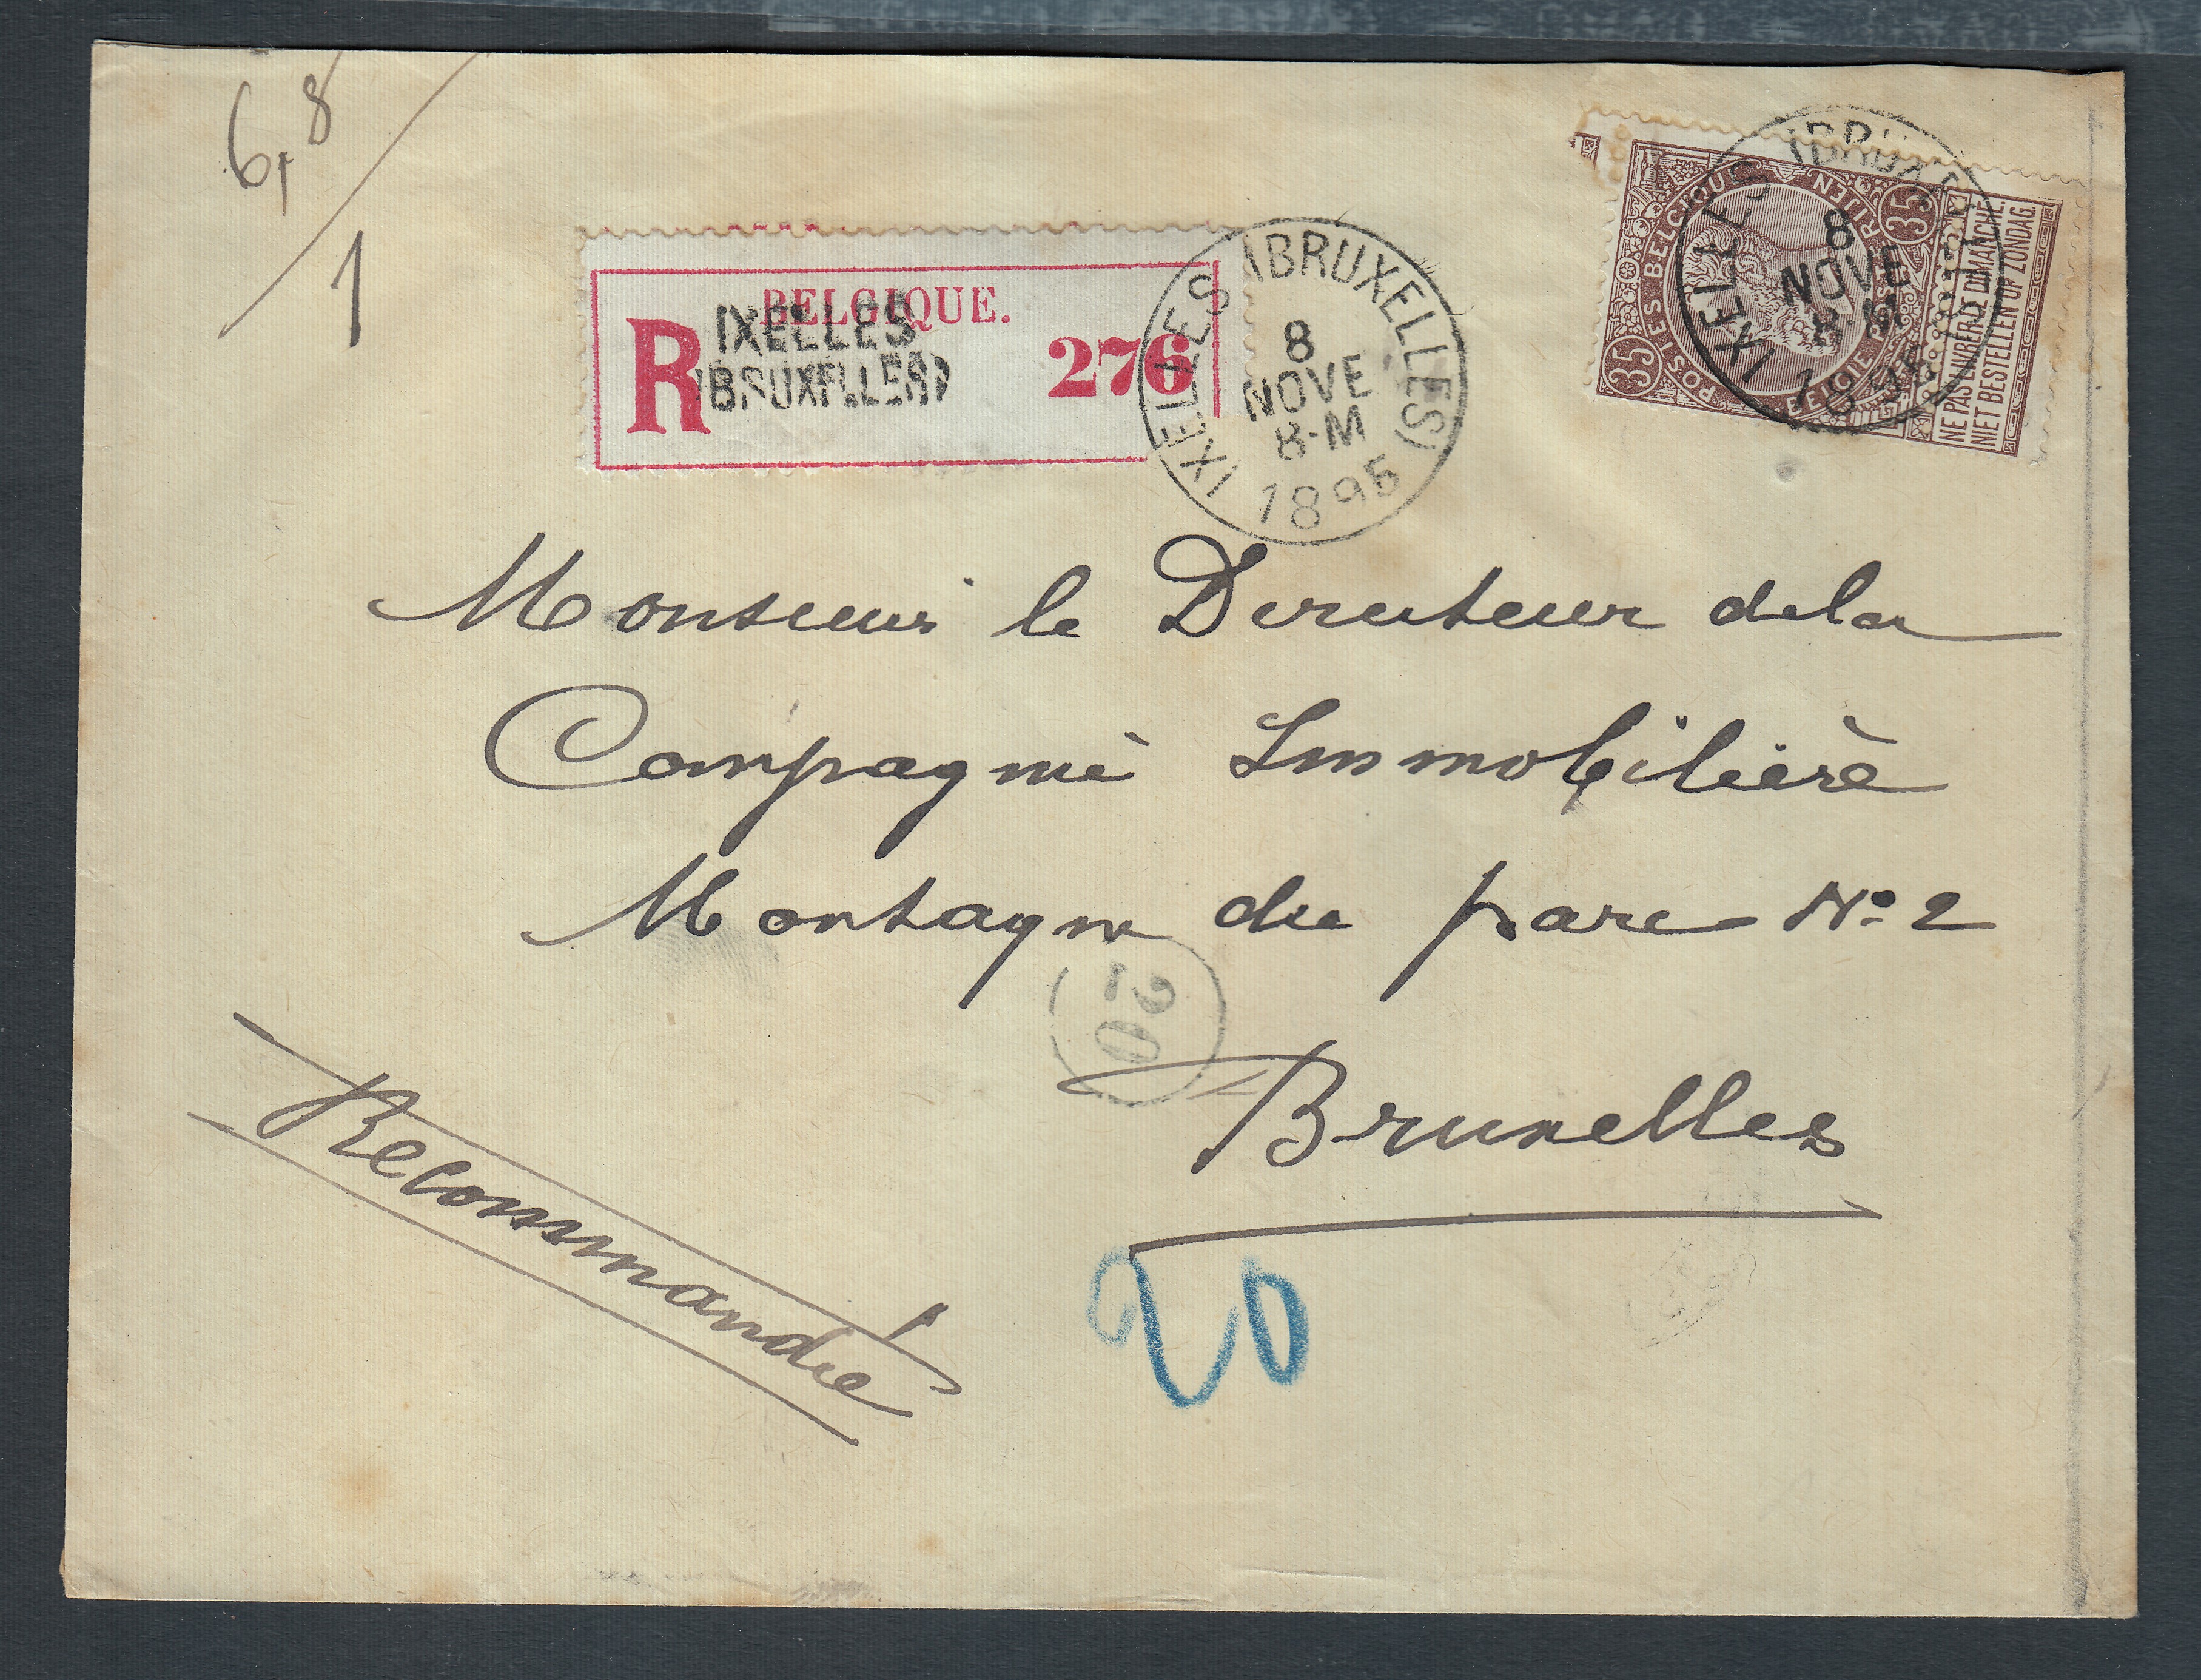 6,8
1
BELGIQUE.
R
IXELLES
(BRUXELLES)
276
IXELLES (BRUXELLES)
8
NOVE
8-M
1895
POSTES BELGIQUE
35
35
NE PAS LIVRER LE DIMANCHE.
NIET BESTELLEN OP ZONDAG.
IXELLES (BRUXELLES)
8
NOVE
8-M
1895
Monsieur le Directeur de la
Compagnie Immobilière
Montagne du parc No 2
20
Bruxelles
Recommandée
20